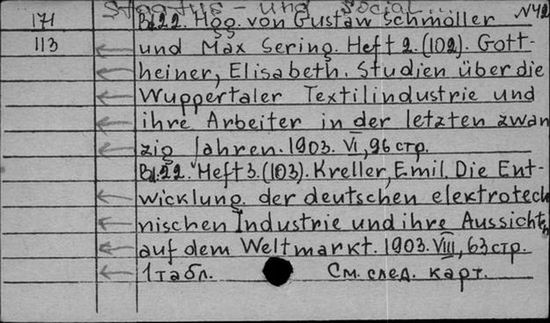 Staats- und Social
171 Bd. 22. Hgg. von Gustav Schmoller N42
113 und Max Sering. Heft 2. (102). Gott-
heiner, Elisabeth. Studien über die
Wuppertaler Textilindustrie und
ihre Arbeiter in der letzten zwan
zig Jahren. 1903. VI, 96 стр.
Bd. 22. Heft 3. (103). Kreller, Emil. Die Ent-
wicklung der deutschen elektrotech
nischen Industrie und ihre Aussichten
auf dem Weltmarkt. 1903. VIII, 63 стр.
1 табл. См. след. карт.